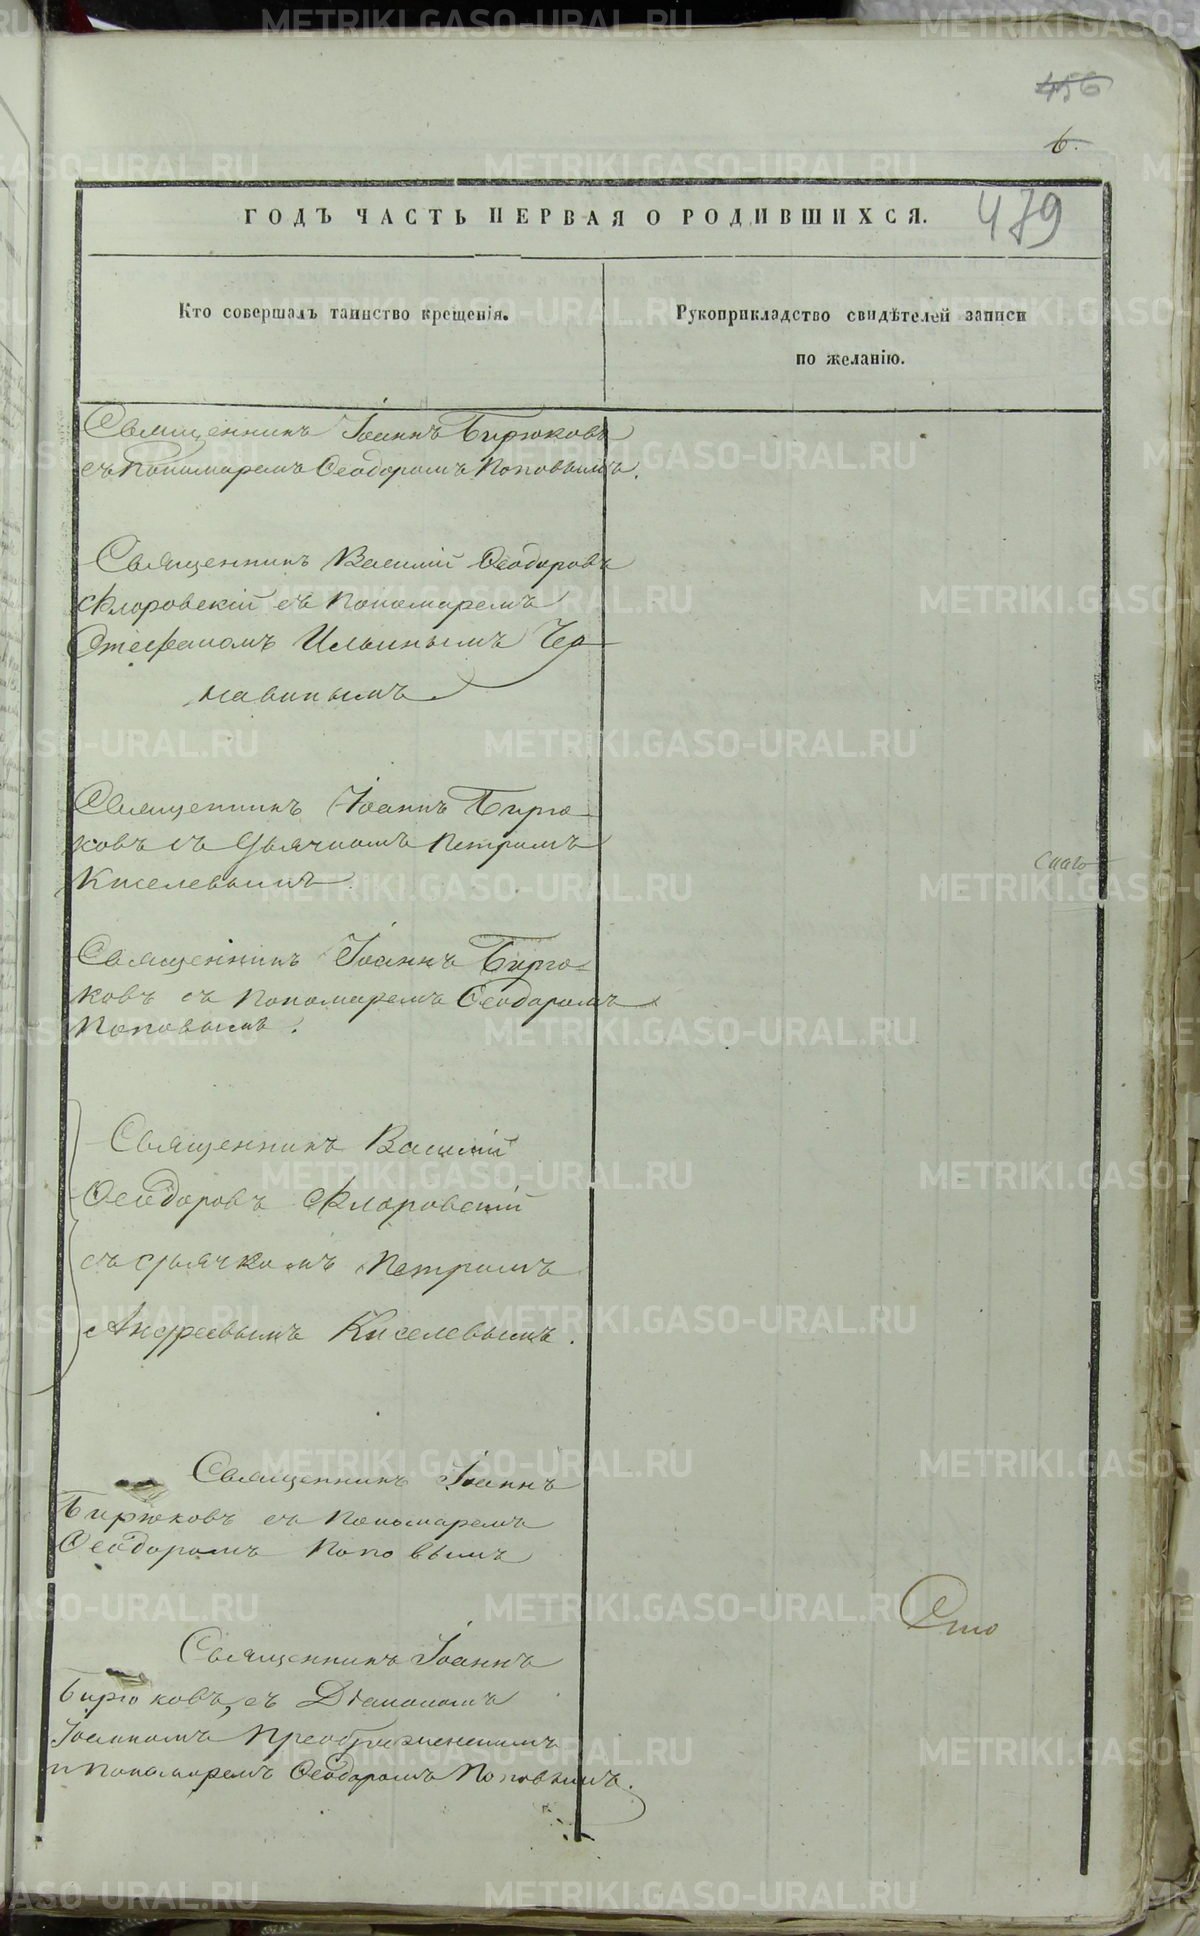 456
6.
479
ГОДЪ ЧАСТЬ ПЕРВАЯ О РОДИВШИХСЯ.
Кто совершалъ таинство крещенія.
Рукоприкладство свидѣтелей записи
по желанію.
Священникъ Іоаннъ Бирюковъ
съ Пономаремъ Ѳеодоромъ Поповымъ.
Священникъ Василій Ѳеодоровъ
Флоровскій съ Пономаремъ
Стефаномъ Ильинымъ Че
Священникъ Іоаннъ Бирю-
ковъ съ Дьячкомъ Петромъ
Киселевымъ.
Священникъ Іоаннъ Бирю-
ковъ съ Пономаремъ Ѳеодоромъ
Поповымъ.
Священникъ Василій
Ѳеодоровъ Флоровскій
съ дьячкомъ Петромъ
Андреевымъ Киселевымъ.
Священникъ Іоаннъ
Бирюковъ съ Пономаремъ
Ѳеодоромъ Поповымъ
Священникъ Іоаннъ
Бирюковъ, съ Діакономъ
Іоанномъ Преображенскимъ
и Пономаремъ Ѳеодоромъ Поповымъ.
METRIKI.GASO-URAL.RU